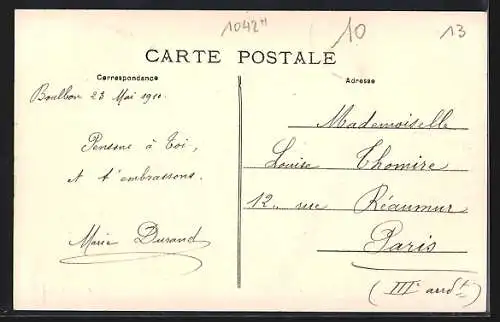 1042"
10
13
CARTE POSTALE
Correspondance
Adresse
Boulbon 23 Mai 1910.
Pensons à toi,
et t'embrassons.
Marie Durand
Mademoiselle
Louise Thomire
12, rue Réaumur
Paris
(IIIe ardt)